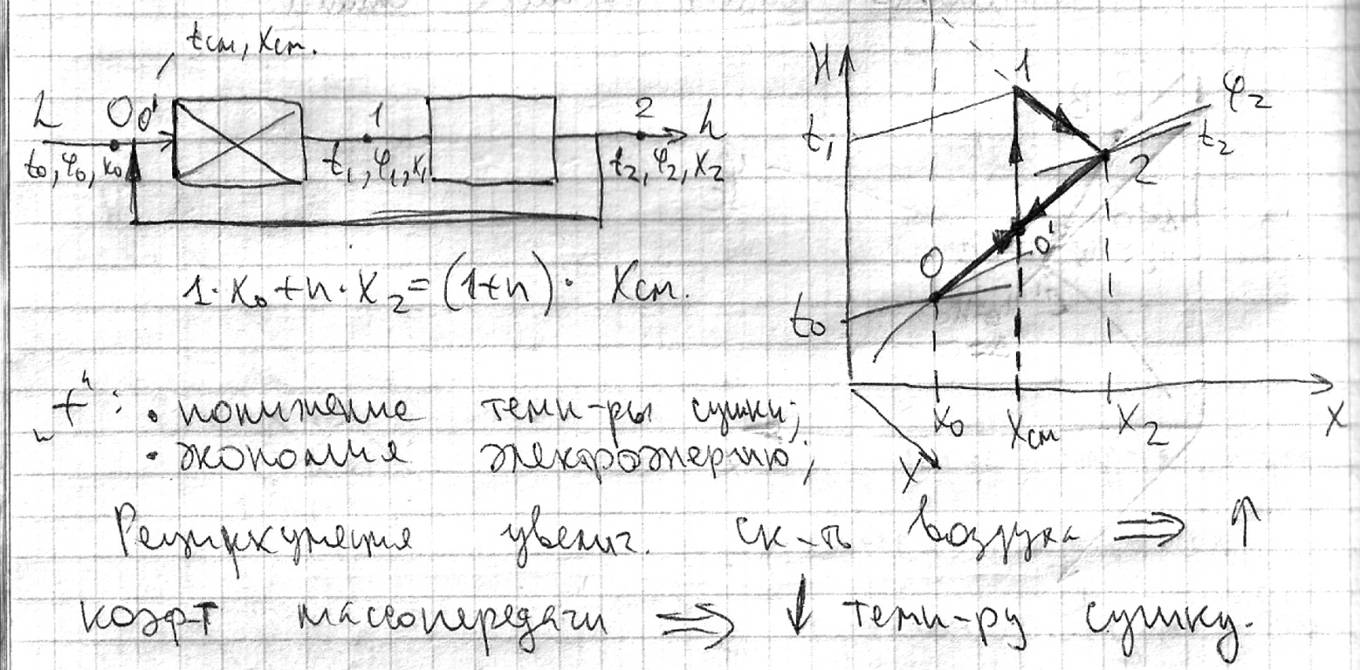 tсм, Xсм.
L 0 0' 1 2 L
t₀, φ₀, x₀ t₁, φ₁, x₁ t₂, φ₂, X₂
1·X₀ + n·X₂ = (1+n)· Xсм.
H 1 φ₂
t₁ t₂
2
0 0'
t₀
X₀ Xсм X₂ X
X
„+“: • понижение темп-ры сушки;
• экономия электроэнергию;
Рециркуляция увелич. ск-ть воздуха ⇒ ↑
коэф-т массопередачи ⇒ ↓ темп-ру сушку.